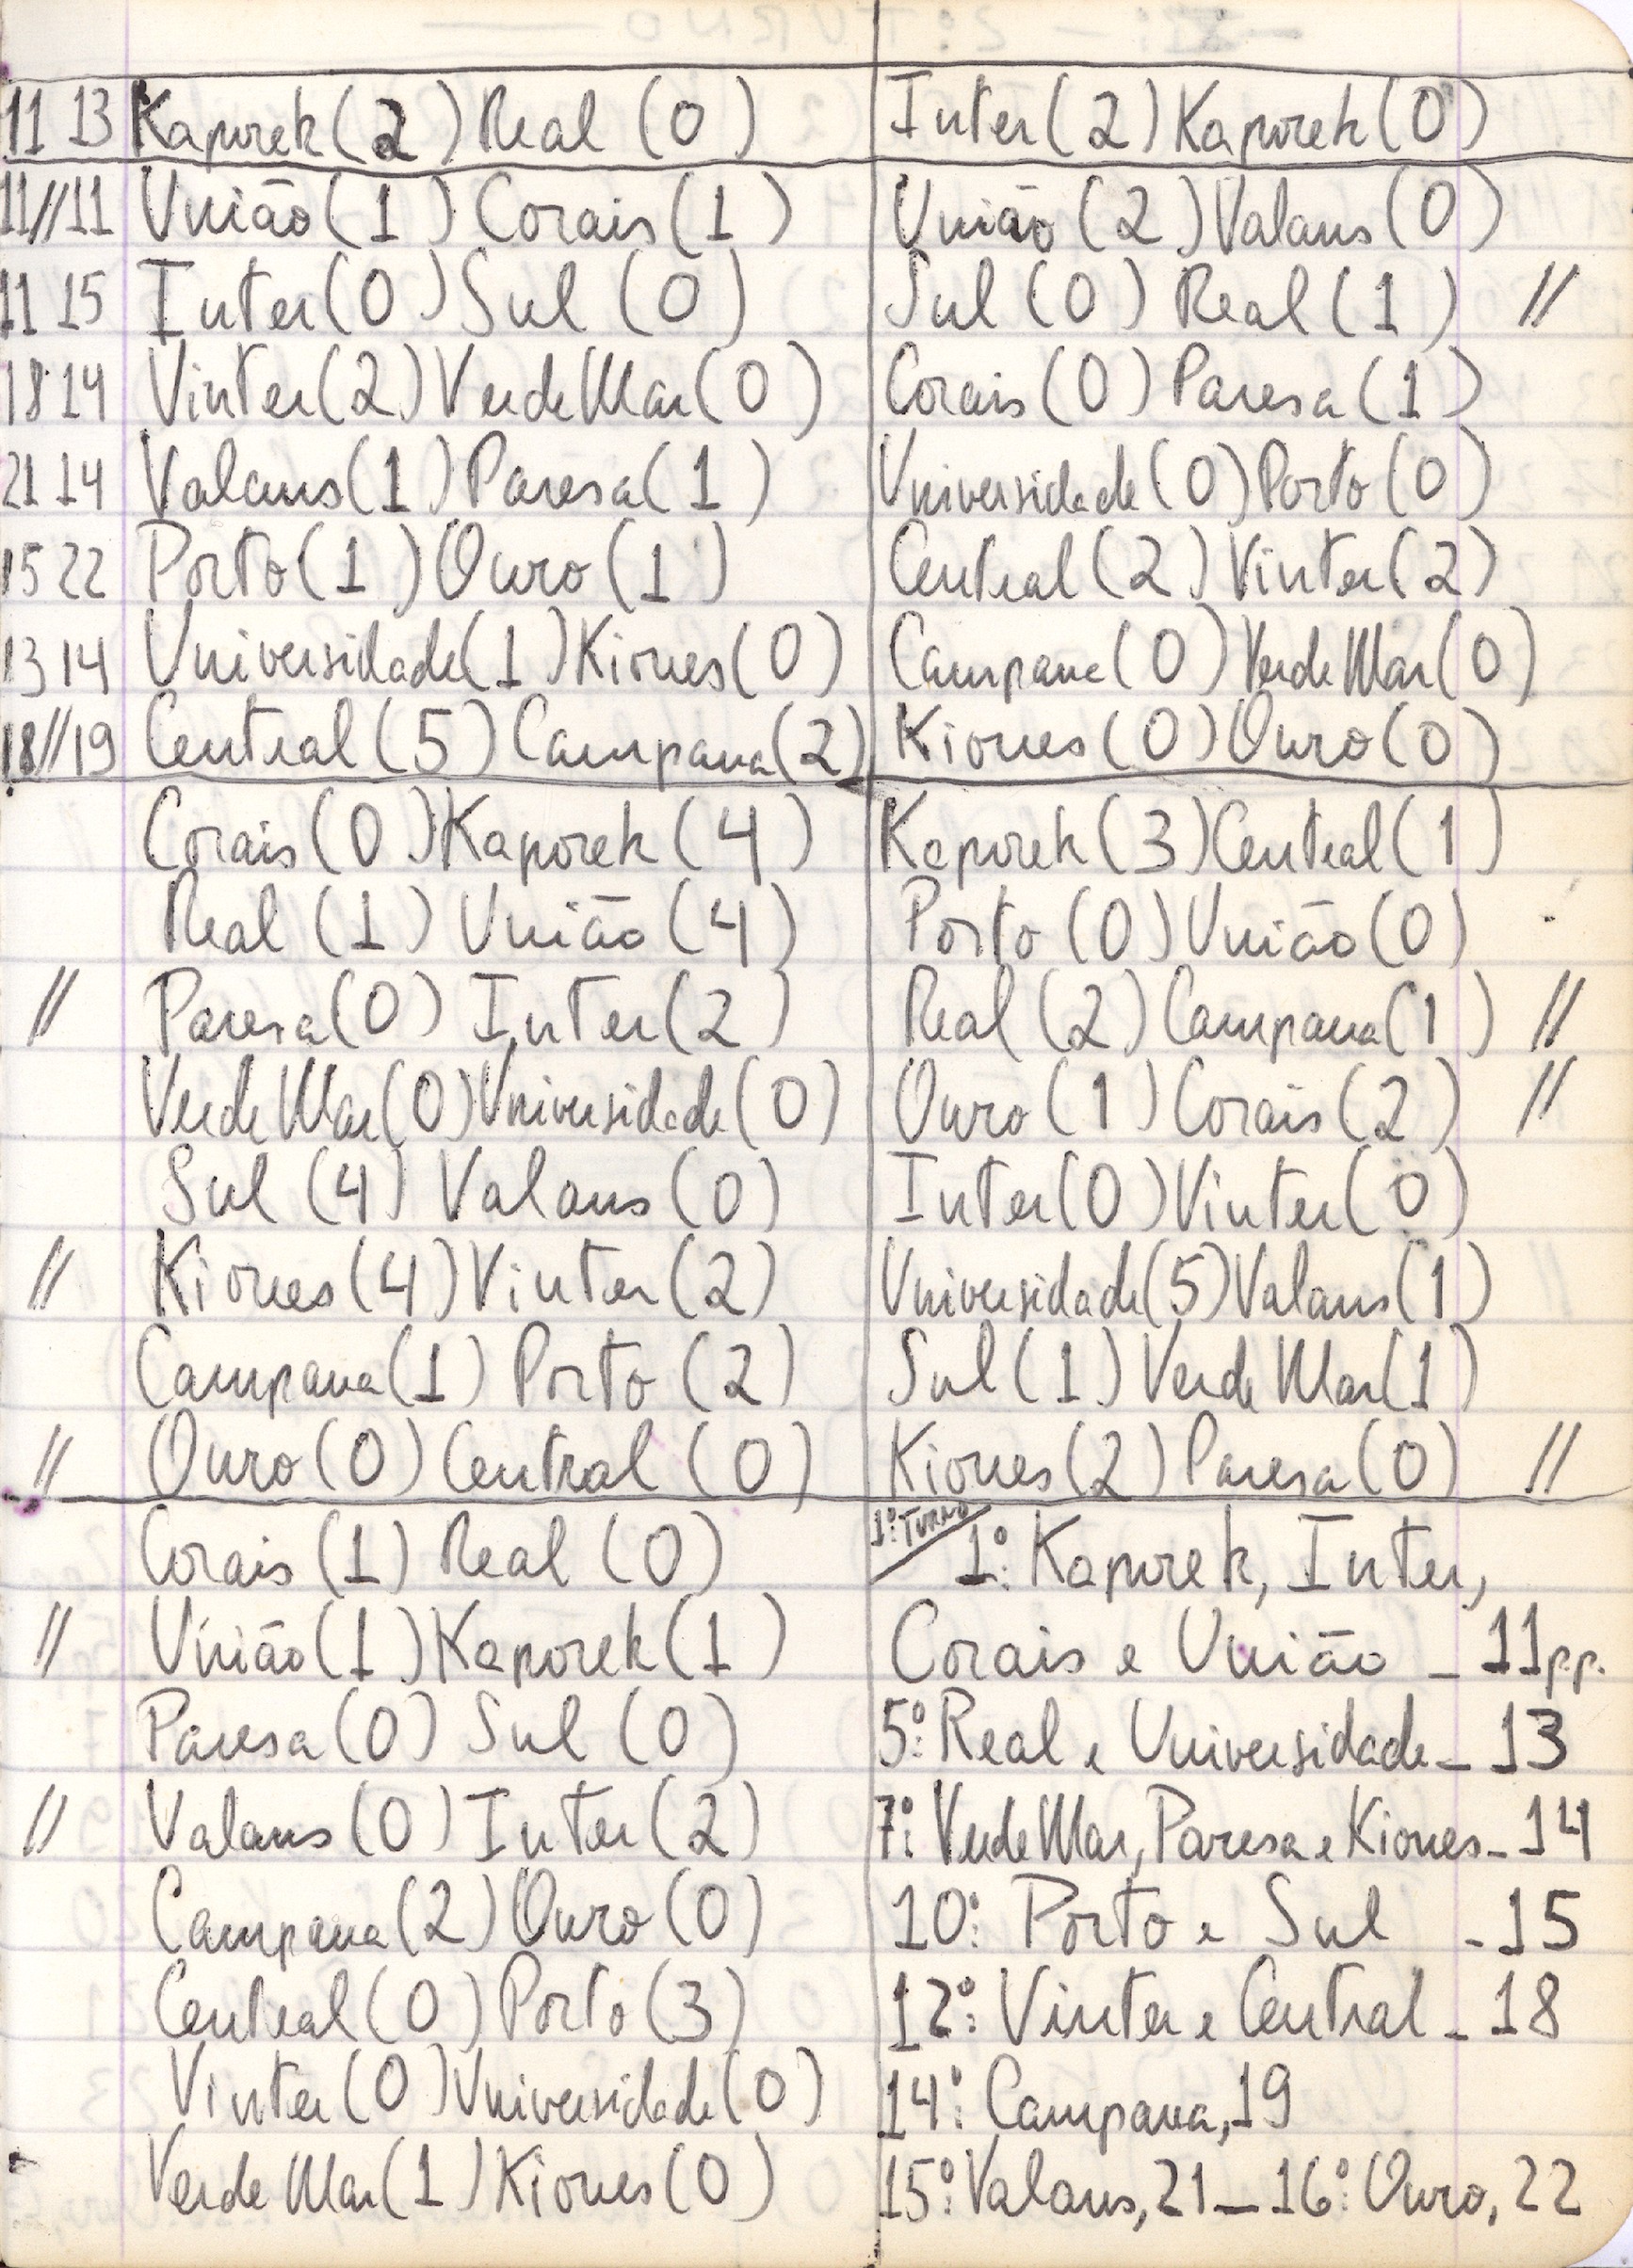 11 13 Kaporek (2) Real (0)
11//11 União (1) Corais (1)
11 15 Inter (0) Sul (0)
18 14 Vinter (2) Verde Mar (0)
21 14 Valans (1) Paresa (1)
15 22 Porto (1) Ouro (1)
13 14 Universidade (1) Kiones (0)
18//19 Central (5) Campana (2)
Corais (0) Kaporek (4)
Real (1) União (4)
// Paresa (0) Inter (2)
Verde Mar (0) Universidade (0)
Sul (4) Valans (0)
// Kiones (4) Vinter (2)
Campana (1) Porto (2)
// Ouro (0) Central (0)
Corais (1) Real (0)
// União (1) Kaporek (1)
Paresa (0) Sul (0)
// Valans (0) Inter (2)
Campana (2) Ouro (0)
Central (0) Porto (3)
Vinter (0) Universidade (0)
Verde Mar (1) Kiones (0)
Inter (2) Kaporek (0)
União (2) Valans (0)
Sul (0) Real (1) //
Corais (0) Paresa (1)
Universidade (0) Porto (0)
Central (2) Vinter (2)
Campana (0) Verde Mar (0)
Kiones (0) Ouro (0)
Kaporek (3) Central (1)
Porto (0) União (0)
Real (2) Campana (1) //
Ouro (1) Corais (2) //
Inter (0) Vinter (0)
Universidade (5) Valans (1)
Sul (1) Verde Mar (1)
Kiones (2) Paresa (0) //
1º TURNO
1º: Kaporek, Inter,
Corais e União - 11 p.p.
5º: Real e Universidade - 13
7º: Verde Mar, Paresa e Kiones - 14
10º: Porto e Sul - 15
12º: Vinter e Central - 18
14º: Campana, 19
15º: Valans, 21 - 16º: Ouro, 22